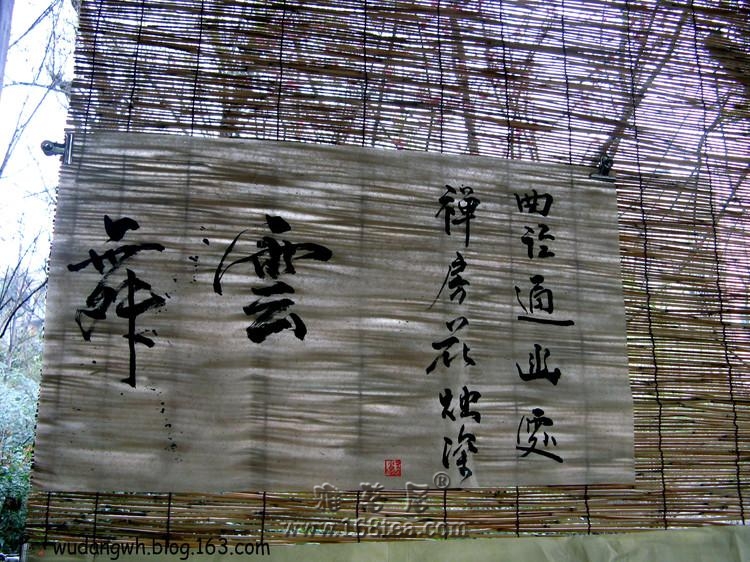 曲径通幽處
禪房花燭深
雲
舞
雅茗居®
www.168tea.com
wudangwh.blog.163.com